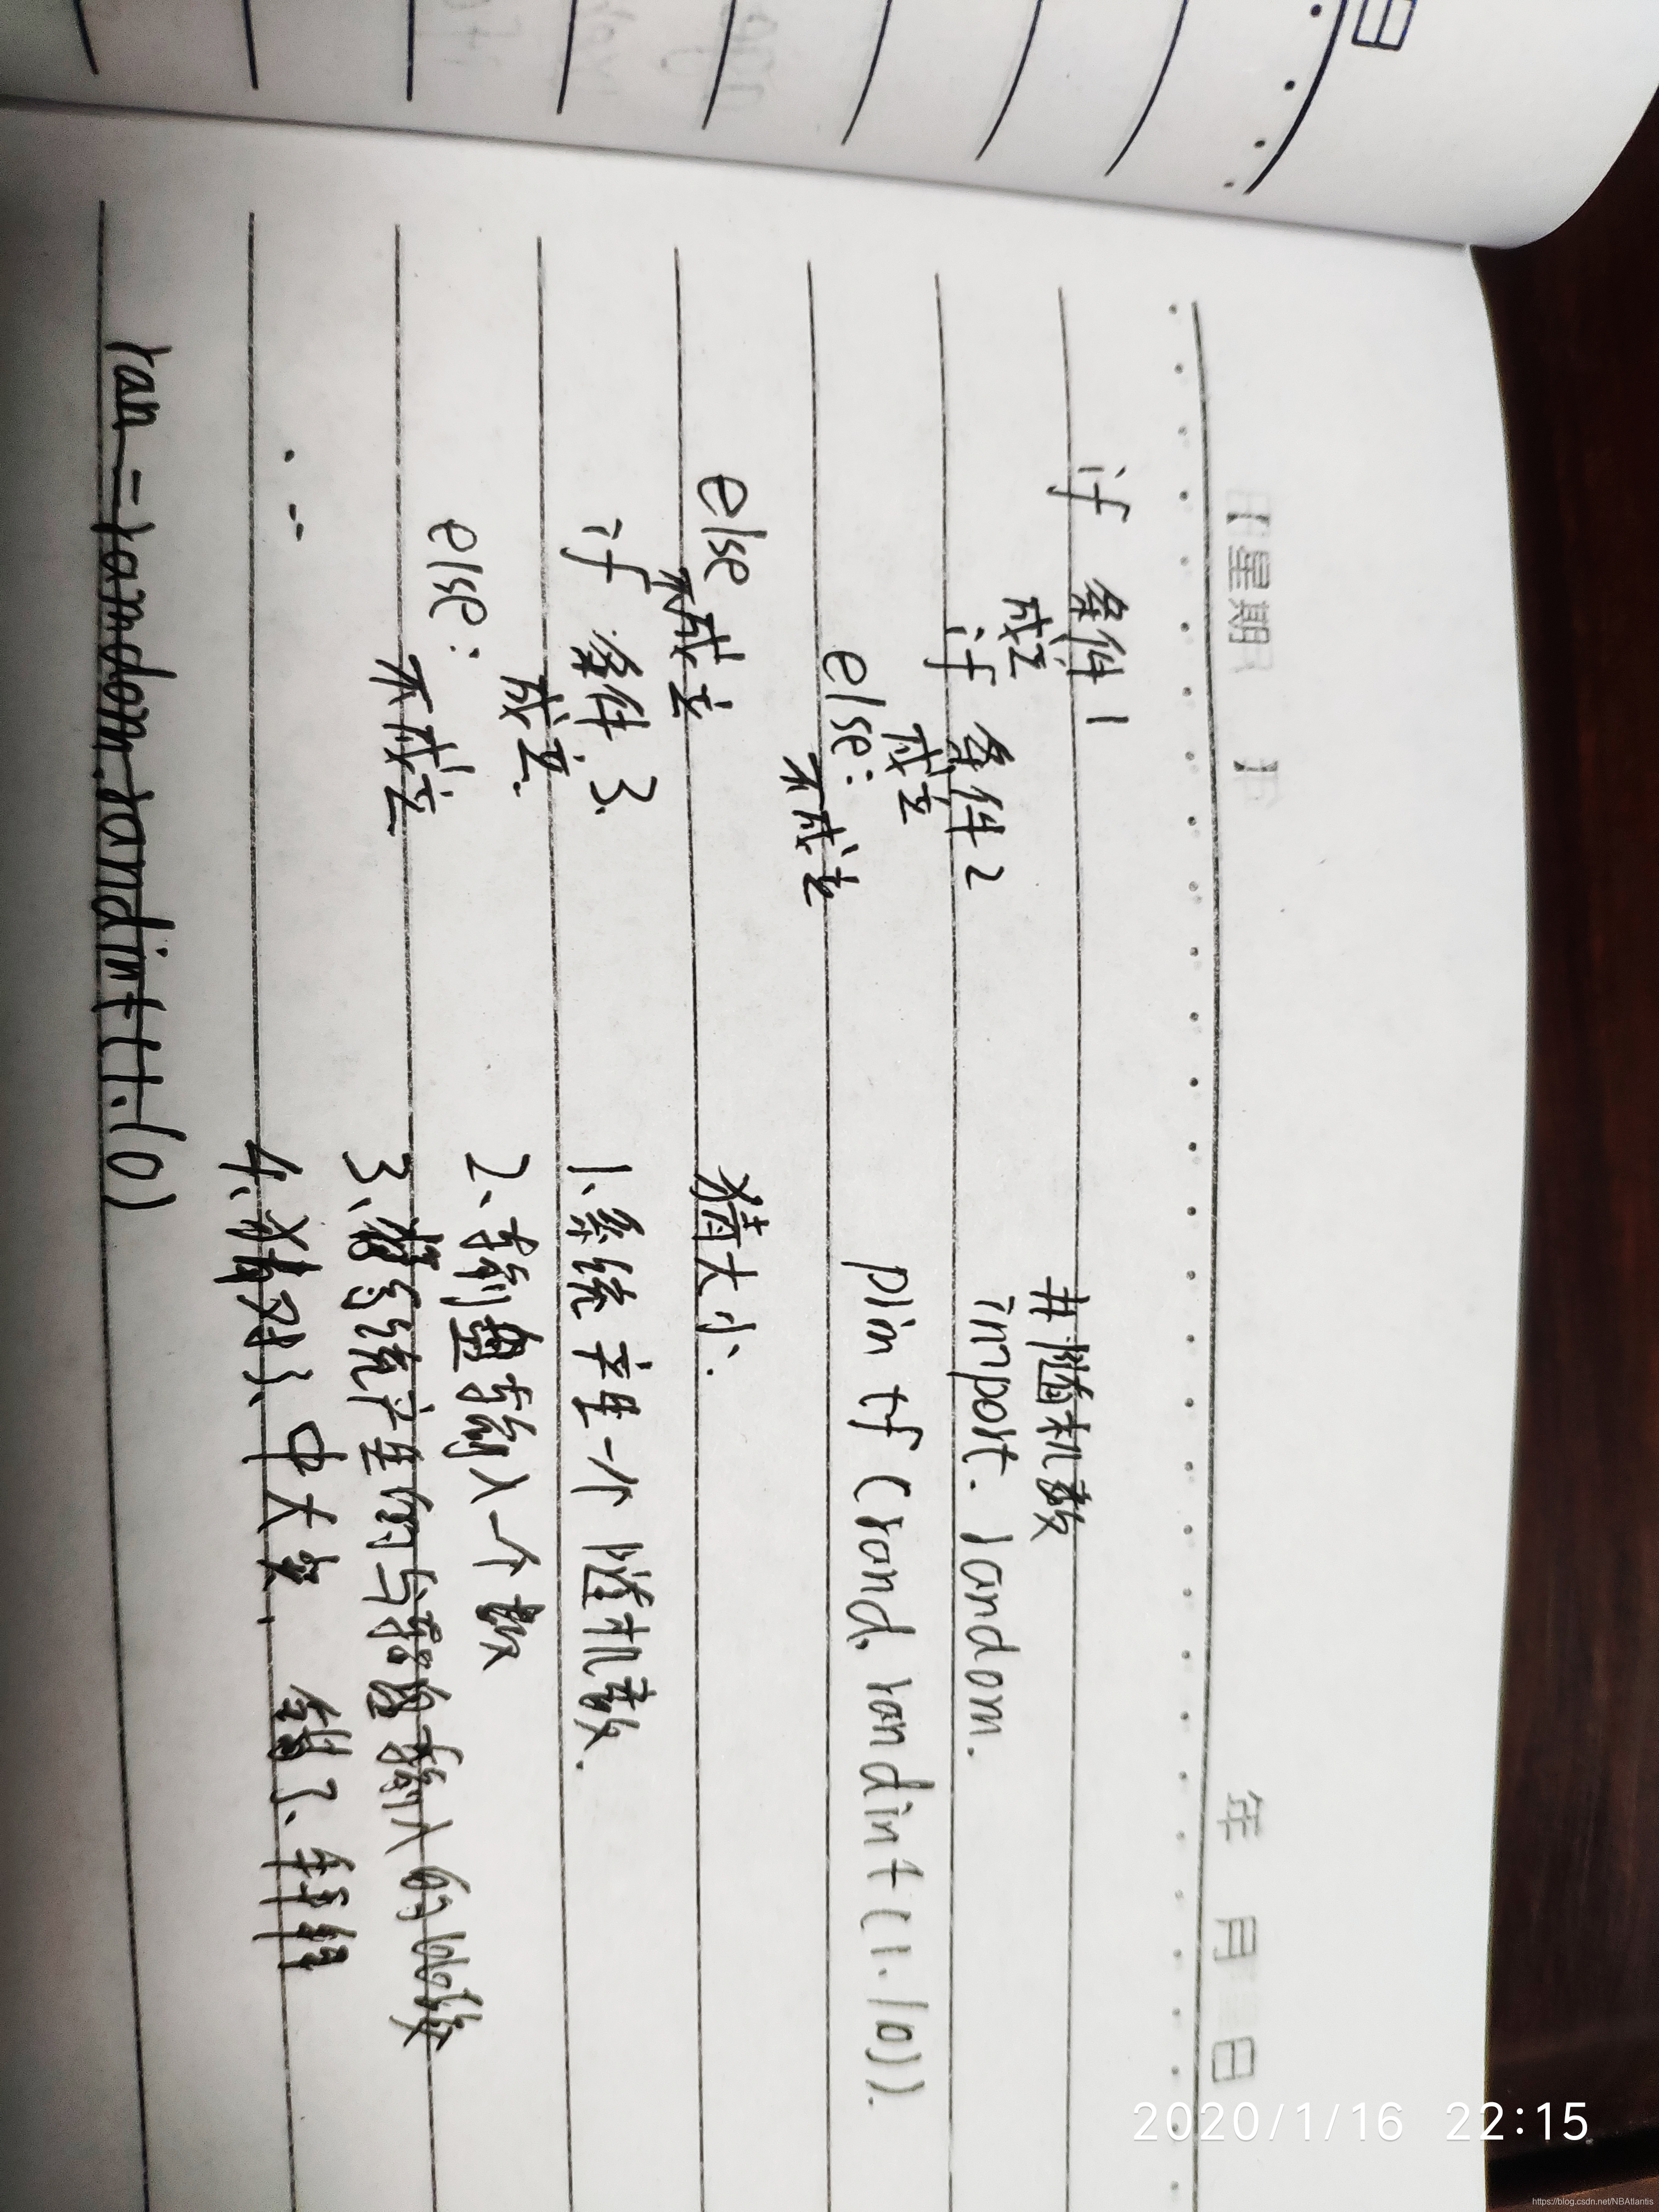 【星期 】 年 月 日
if 条件1
成立
if 条件2
成立
else:
不成立
else
不成立
if 条件3.
成立.
else:
不成立.
#随机数
import. random.
plintf(rand. randint(1.10)).
猜大小.
1.系统产生一个随机数.
2、输入一个数
3、系统产生的与输入的比较
4、猜对了、中大奖. 错了、
ran=random.randint(1.10)
2020/1/16 22:15
https://blog.csdn.net/NBAtlantis